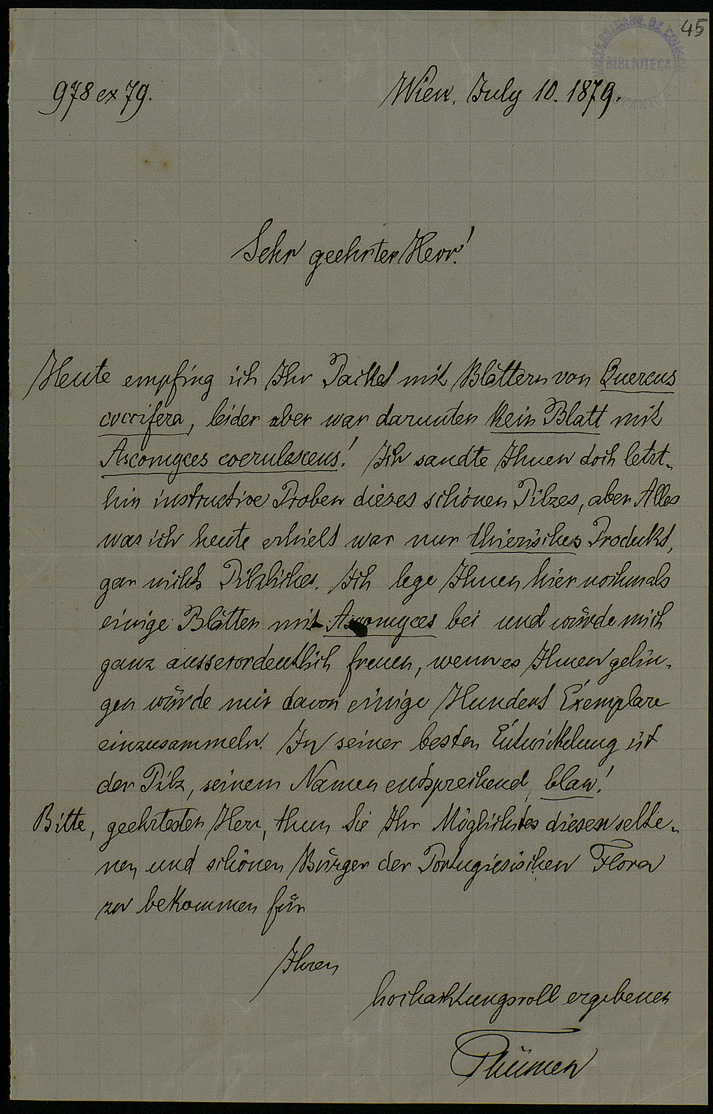 45
BIBLIOTECA
978 ex 79.
Wien, July 10. 1879.
Sehr geehrter Herr!
Heute empfing ich Ihr Packet mit Blättern von Quercus
coccifera, leider aber war darunter kein Blatt mit
Ascomyces coerulescens! Ich sandte Ihnen doch letzt-
hin instructive Proben dieses schönen Pilzes, aber Alles
was ich heute erhielt war nur thierisches Produkt,
gar nichts Pilzliches. Ich lege Ihnen hier nochmals
einige Blätter mit Ascomyces bei und würde mich
ganz ausserordentlich freuen, wenn es Ihnen gelin-
gen würde mir davon einige Hundert Exemplare
einzusammeln. In seiner besten Entwickelung ist
der Pilz, seinem Namen entsprechend, blau!
Bitte, geehrtester Herr, thun Sie Ihr Möglichstes diesen selte-
nen und schönen Bürger der Portugiesischen Flora
zu bekommen für
Ihren
hochachtungsvoll ergebenen
Thümen